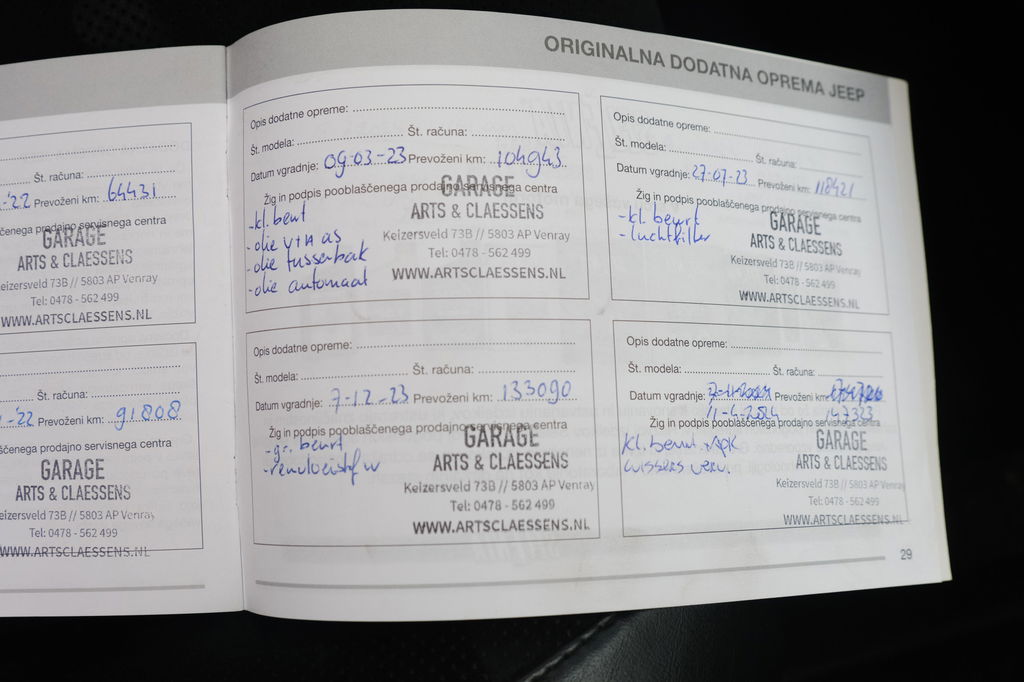 Št. računa:
-'22 Prevoženi km: 64431
čenega prodajno servisnega centra
GARAGE
ARTS & CLAESSENS
Keizersveld 73B // 5803 AP Venray
Tel: 0478 - 562 499
WWW.ARTSCLAESSENS.NL
Št. računa:
-'22 Prevoženi km: 91.808
ščenega prodajno servisnega centra
GARAGE
ARTS & CLAESSENS
eizersveld 73B // 5803 AP Venray
Tel: 0478 - 562 499
WWW.ARTSCLAESSENS.NL
ORIGINALNA DODATNA OPREMA JEEP
Opis dodatne opreme:
Št. modela: Št. računa:
Datum vgradnje: 09-03-23 Prevoženi km: 104943
Žig in podpis pooblaščenega prodajno servisnega centra
GARAGE
ARTS & CLAESSENS
Keizersveld 73B // 5803 AP Venray
Tel: 0478 - 562 499
WWW.ARTSCLAESSENS.NL
-kl. beurt
-olie v+a as
-olie tussenbak
-olie automaat
Opis dodatne opreme:
Št. modela: Št. računa:
Datum vgradnje: 27-07-23 Prevoženi km: 118421
Žig in podpis pooblaščenega prodajno servisnega centra
GARAGE
ARTS & CLAESSENS
Keizersveld 73B // 5803 AP Venray
Tel: 0478 - 562 499
WWW.ARTSCLAESSENS.NL
-kl. beurt
-luchtfilter
Opis dodatne opreme:
Št. modela: Št. računa:
Datum vgradnje: 7-12-23 Prevoženi km: 133090
Žig in podpis pooblaščenega prodajno servisnega centra
GARAGE
ARTS & CLAESSENS
Keizersveld 73B // 5803 AP Venray
Tel: 0478 - 562 499
WWW.ARTSCLAESSENS.NL
-gr. beurt
Opis dodatne opreme:
Št. modela: Št. računa:
Datum vgradnje: Prevoženi km:
11-4-2024 147323
Žig in podpis pooblaščenega prodajno servisnega centra
GARAGE
ARTS & CLAESSENS
Keizersveld 73B // 5803 AP Venray
Tel: 0478 - 562 499
WWW.ARTSCLAESSENS.NL
kl. beurt + APK
wissers verv.
29